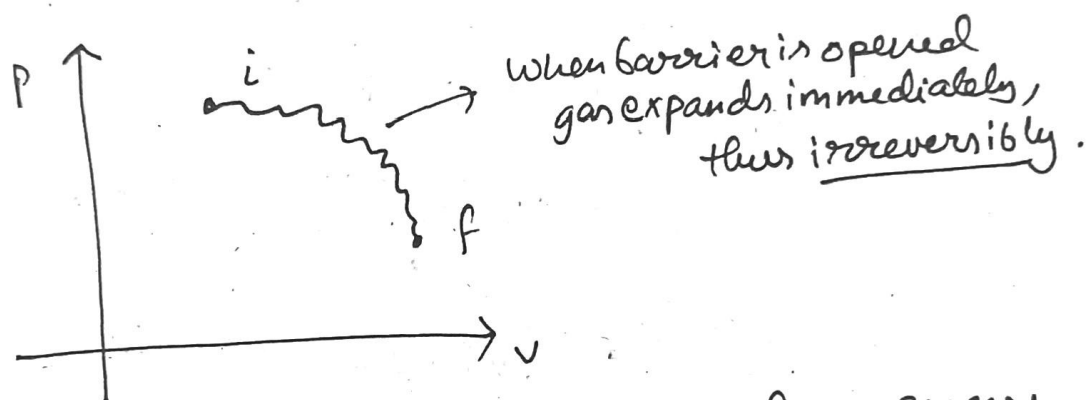 P
i
when barrier is opened
gas expands immediately,
thus irreversibly.
f
V